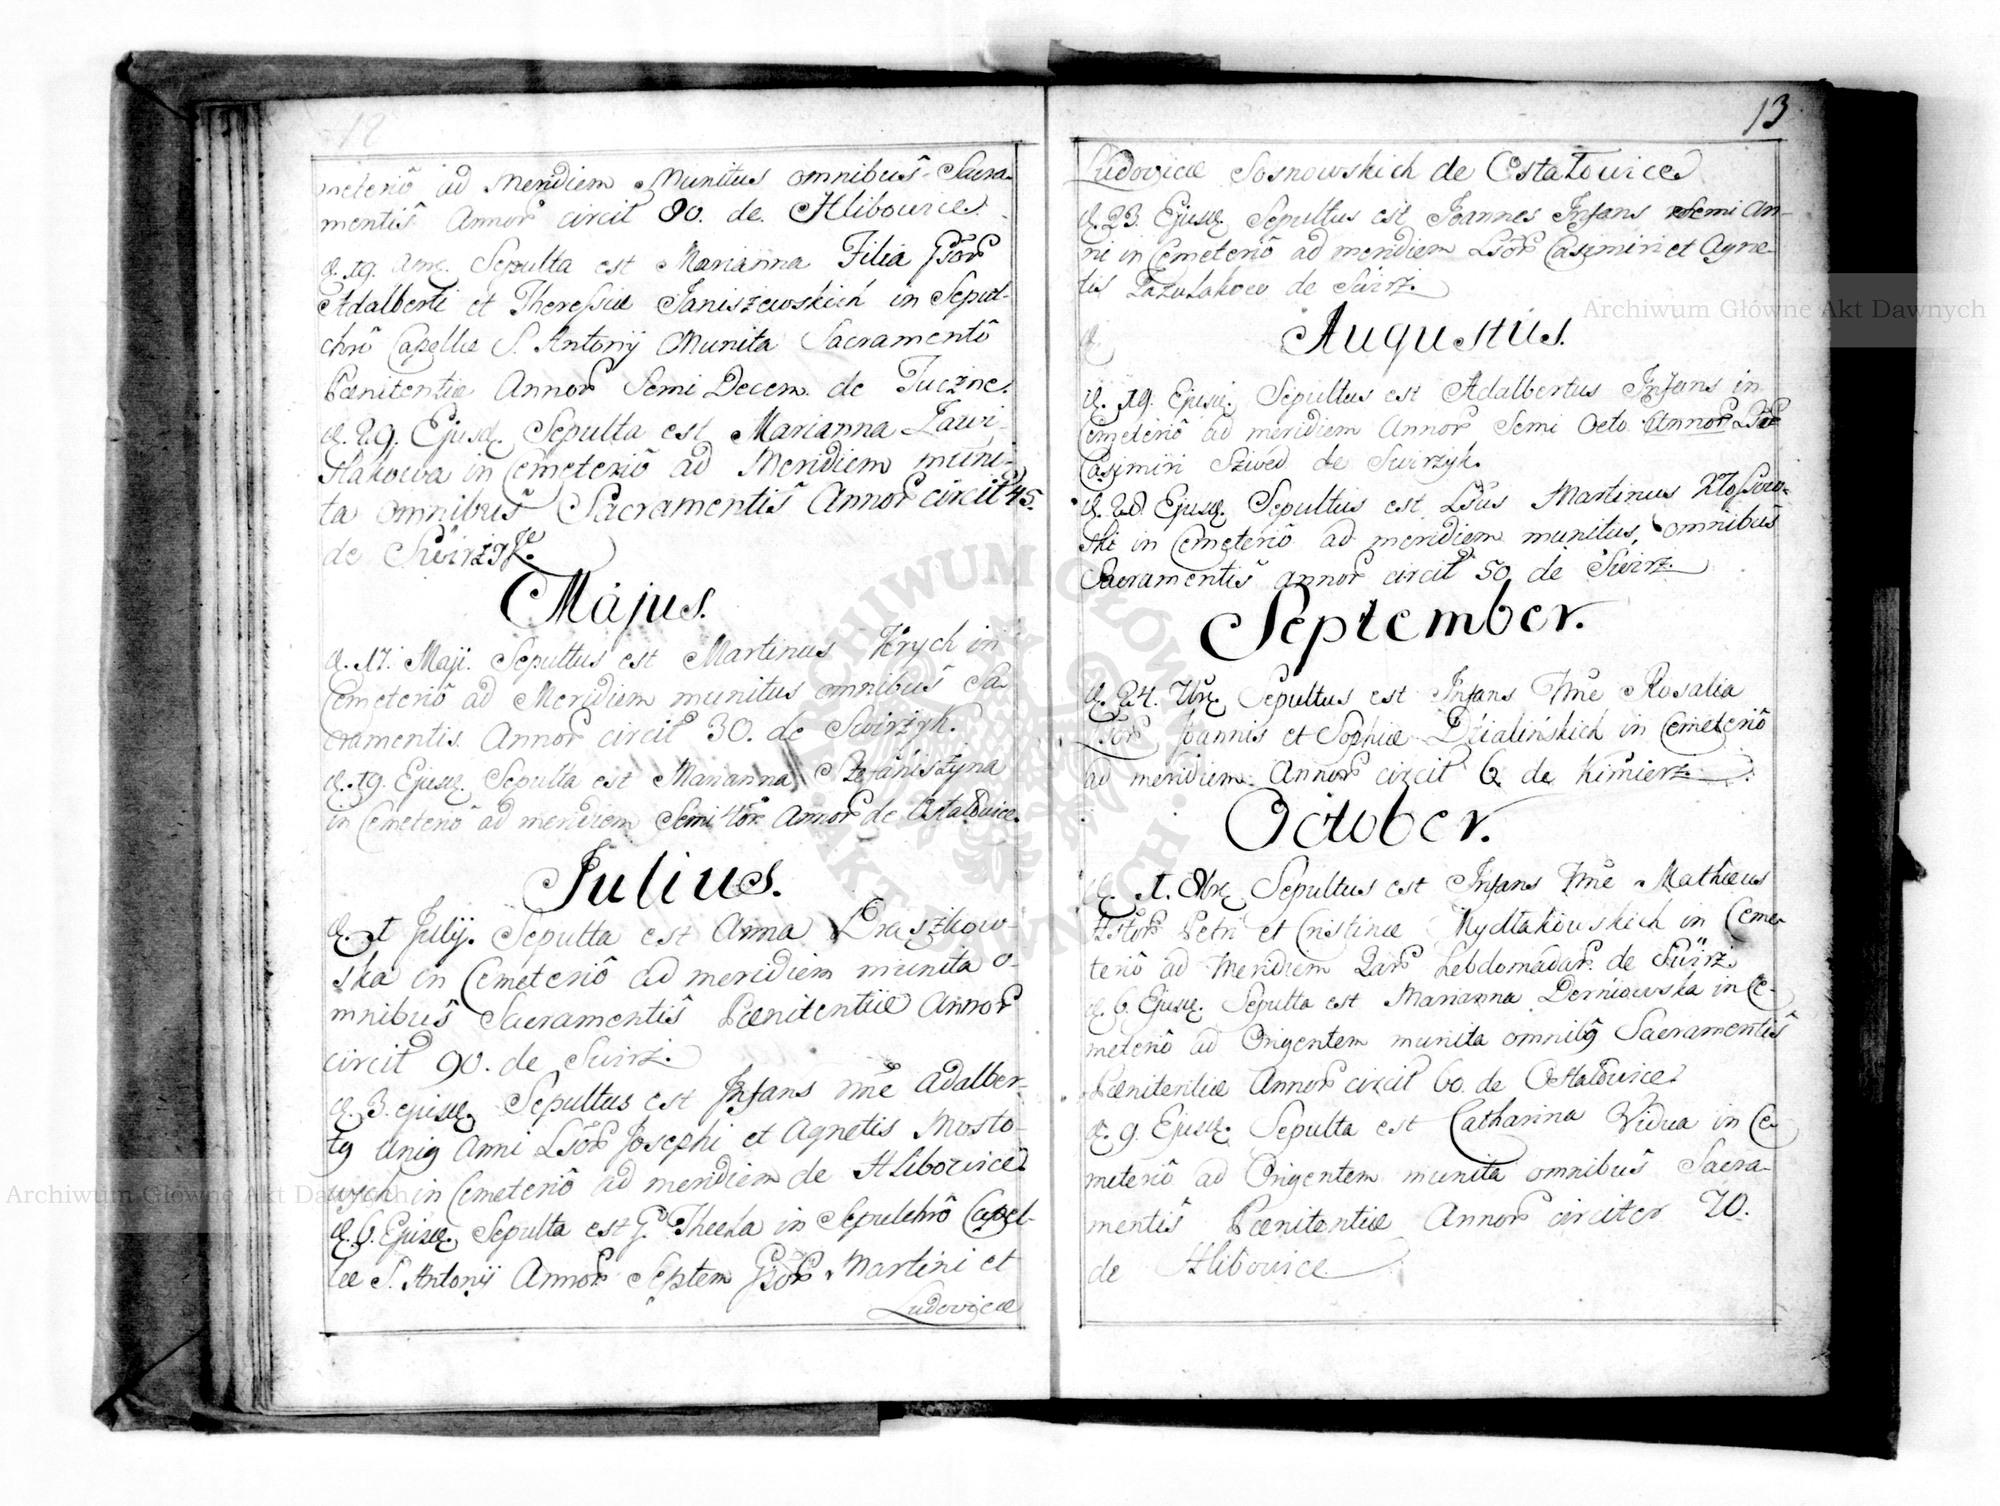 12
meteriô ad Meridiem Munitus omnibuŝ Sacra-
mentiŝ Annor circit 80. de Hlibowice
d. 19. Sepulta est Marianna Filia Gsor
Adalberti et Theressiæ Janiszewskich in Sepul-
chrô Capellæ S. Antonij Munita Sacramentô
Pœnitentiæ Annor Semi Decem de Tuczne.
d. 29. Ejusd. Sepulta est Marianna Ławi-
in Cemeteriô ad Meridiem muni-
ta omnibuŝ Sacramentiŝ Annor circit 45.
de Swirzyk.
Majus.
d. 17. Maji. Sepultus est Martinus Krych in
Cemeteriô ad Meridiem munitus omnibuŝ Sa-
cramentis Annor circit 30. de Swirzyk.
d. 19. Ejusd. Sepulta est Marianna
in Cemeteriô ad meridiem Semi Annor de Ostałowice.
Julius.
d. 1 Julij. Sepulta est Anna Draszkow-
ska in Cemeteriô ad meridiem munita o-
mnibuŝ Sacramentiŝ Pœnitentiæ Annor
circit 90. de Swirz.
d. 3. ejusd. Sepultus est Infans nne Adalber-
Anni Lsor Josephi et Agnetis Mosto-
wych in Cemeteriô ad meridiem de Hlibowice
d. 6. Ejusd. Sepulta est G. Thecla in Sepulchrô Capel-
læ S. Antonij Annor Septem Gsor Martini et
Ludovicæ
13
Ludovicæ Sosnowskich de Ostałowice
d. 23. Ejusd. Sepultus est Joannes Infans Semi An-
ni in Cemeteriô ad meridiem Lsor Casimiri et Agne-
tis de Swirz.
d.
Augustus.
d. 19. Ejusd. Sepultus est Adalbertus Infans in
Cemeteriô ad meridiem Annor Semi Octo Annor Lsor
Casimiri Szwed de Swirzyk.
d. 28. Ejusd. Sepultus est Lsus Martinus
ski in Cemeteriô ad meridiem munitus omnibuŝ
Sacramentiŝ annor circit 50 de Swirz
September.
d. 24. 7bris Sepultus est Infans Nne Rosalia
Lsor Joannis et Sophiæ Dzialińskich in Cemeteriô
ad meridiem Annor circit 6 de Kimierz.
October.
d. 1. 8bris Sepultus est Infans Nne Mathæus
Petri et Cristinæ Mydłakowskich in Ceme-
teriô ad Meridiem hebdomadar. de Swirz.
d. 6. Ejusd. Sepulta est Marianna Derniowska in Ce-
meteriô ad Origentem munita omnibq Sacramentiŝ
Pœnitentiæ Annor circit 60. de Ostałowice
d. 9. Ejusd. Sepulta est Catharina Vidua in Ce-
meteriô ad Origentem munita omnibuŝ Sacra-
mentiŝ Pœnitentiæ Annor circiter 70.
de Hlibowice
Archiwum Główne Akt Dawnych
Archiwum Główne Akt Dawnych
ARCHIWUM GŁÓWNE AKT DAWNYCH